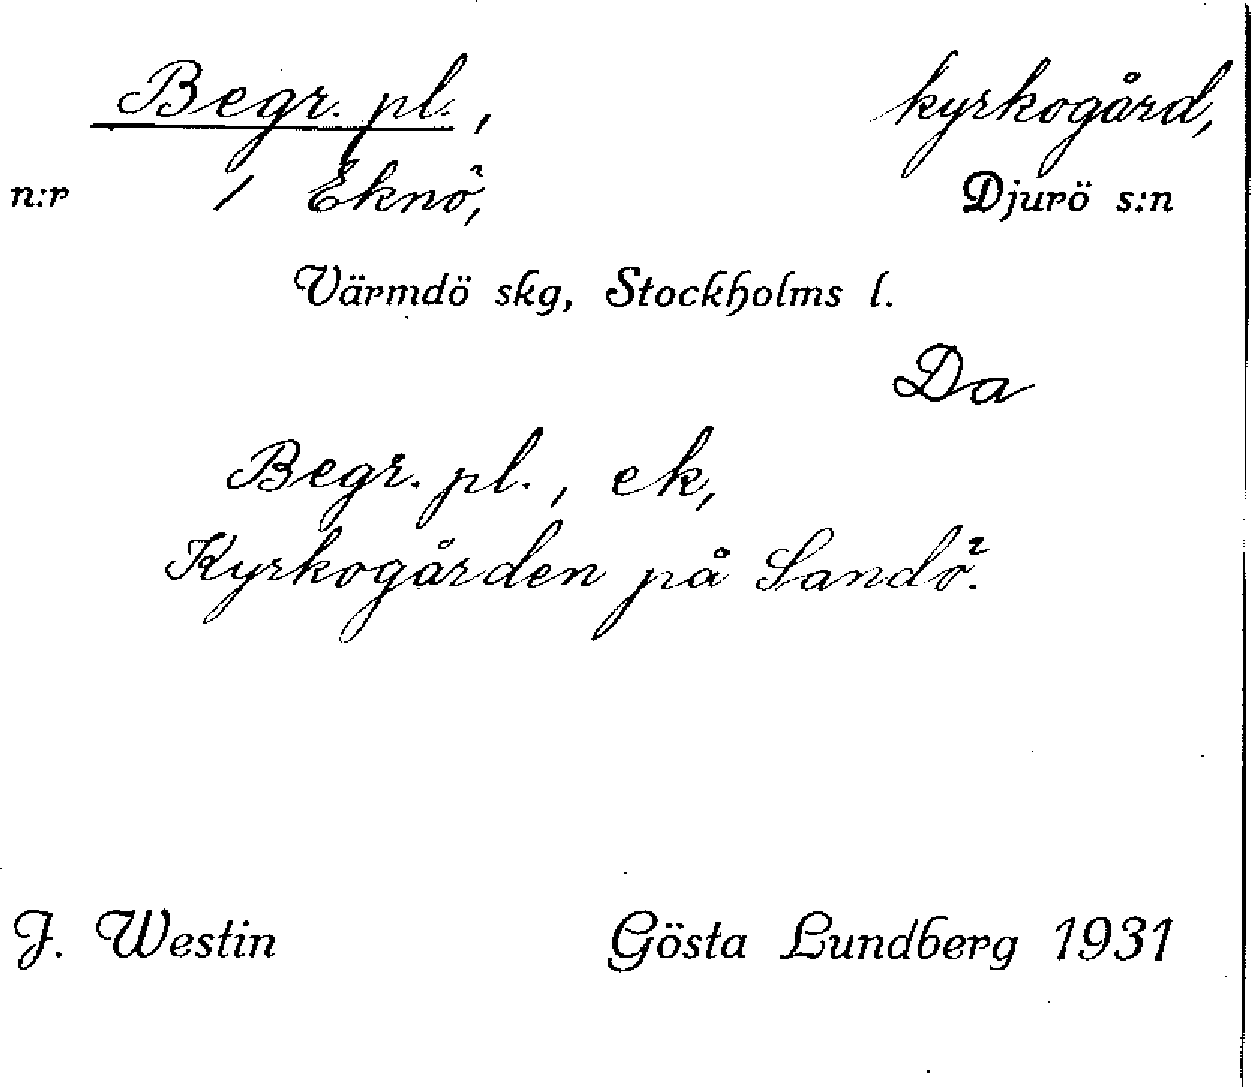 Begr. pl., kyrkogård,
n:r 1 Eknö, Djurö s:n
Värmdö skg, Stockholms l.
Da
Begr. pl., ek,
Kyrkogården på Sandö.
J. Westin Gösta Lundberg 1931